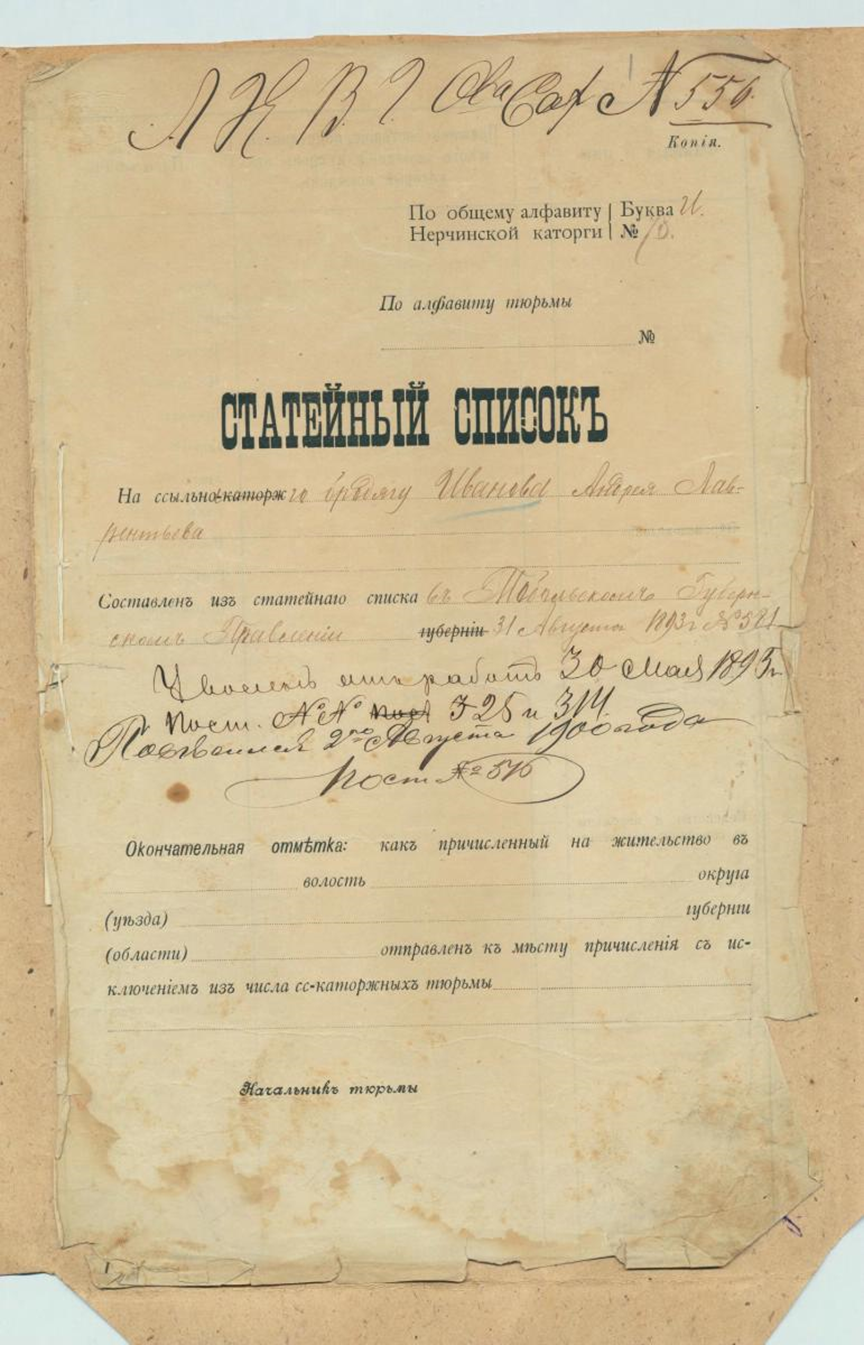 Л Н. В. № 556.
Копія.
По общему алфавиту Буква И.
Нерчинской каторги № 10.
По алфавиту тюрьмы
№
СТАТЕЙНЫЙ СПИСОКЪ
На ссыльно-каторжго бродягу Иванова Андрея Лав-
рентьева
Составленъ изъ статейнаго списка въ Тобольскомъ Губерн-
скомъ Правленіи губерніи 31 Августа 1893 г. № 521
Уволенъ отъ работъ 30 мая 1895 г.
Пост. №№ 325 и 314.
2го Августа 1900 года
Пост №
Окончательная отмѣтка: какъ причисленный на жительство въ
волость округа
(уѣзда) губерніи
(области) отправленъ къ мѣсту причисленія съ ис-
ключеніемъ изъ числа сс-каторжныхъ тюрьмы
Начальникъ тюрьмы